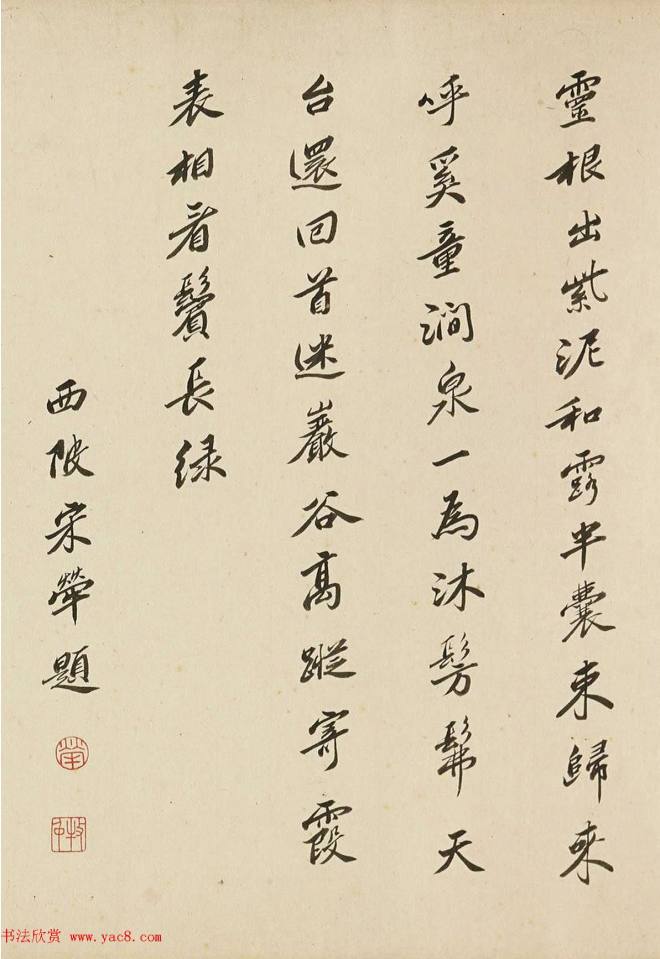 靈根出紫泥和露半囊束歸來
呼奚童澗泉一爲沐髣髴天
台還回首迷巖谷高蹤寄霞
表相看鬢長緑
西陂宋犖題
犖
牧仲
书法欣赏 www.yac8.com